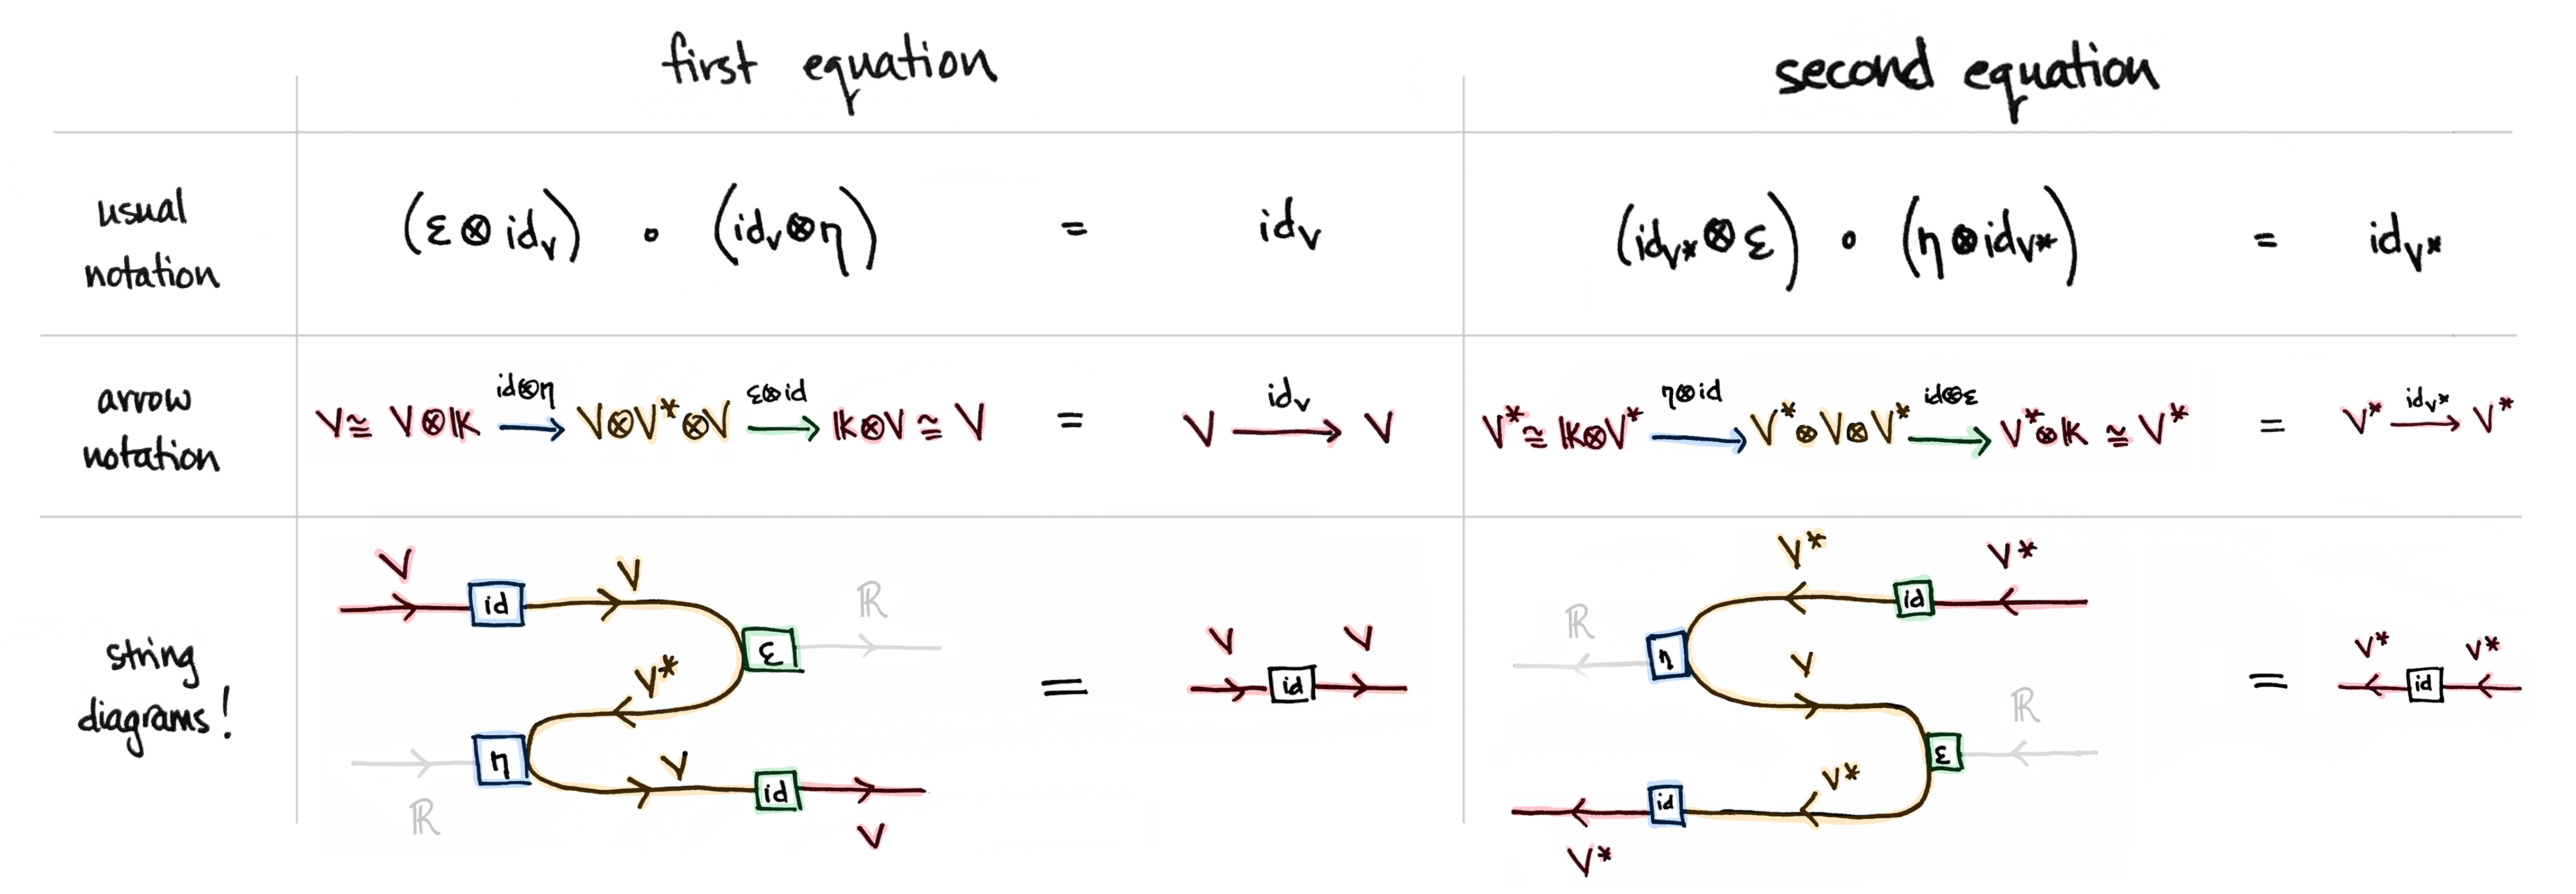 first equation
second equation
usual notation
(ε ⊗ id_V) ∘ (id_V ⊗ η) = id_V
(id_V* ⊗ ε) ∘ (η ⊗ id_V*) = id_V*
arrow notation
id⊗η ε⊗id id_V
V ≅ V⊗𝕜 → V⊗V*⊗V → 𝕜⊗V ≅ V = V → V
η⊗id id⊗ε id_V*
V* ≅ 𝕜⊗V* → V*⊗V⊗V* → V*⊗𝕜 ≅ V* = V* → V*
string diagrams!
V
V
id
ℝ
ε
V*
η
ℝ
V
id
V
=
V
V
id
V*
V*
id
ℝ
η
V
ℝ
ε
V*
id
V*
=
V*
V*
id